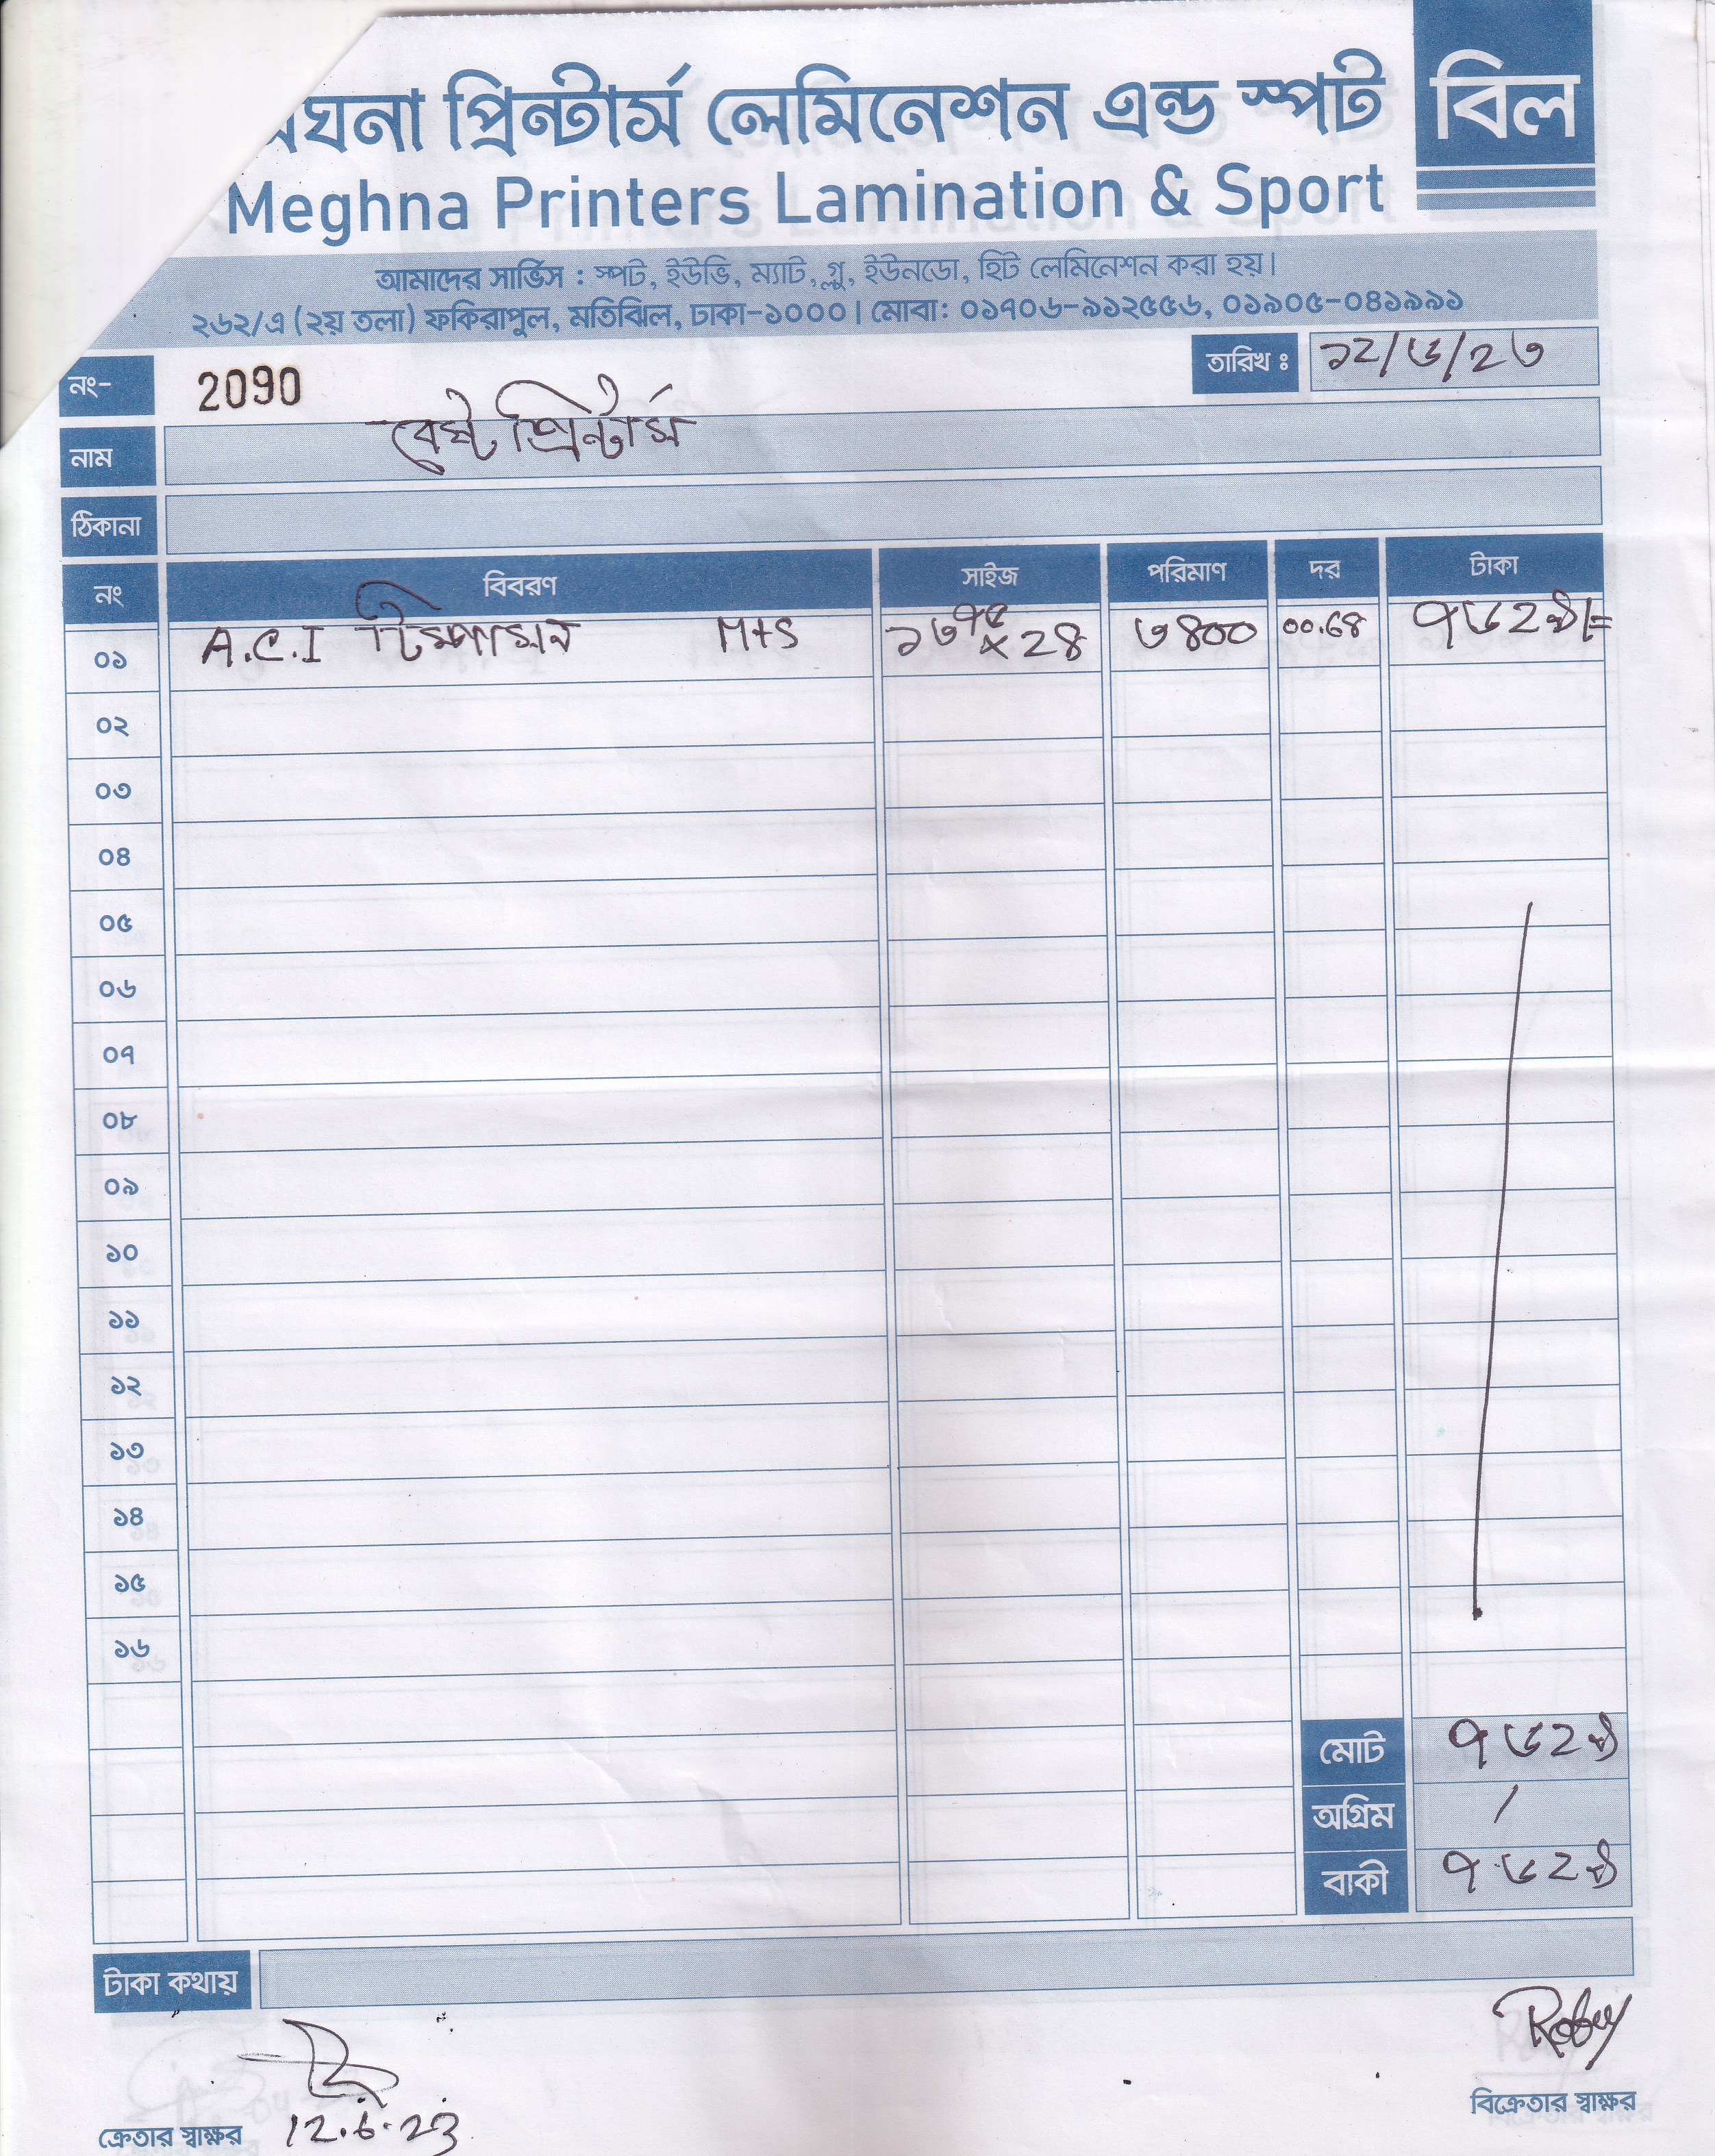 মেঘনা প্রিন্টার্স লেমিনেশন এন্ড স্পট
বিল
Meghna Printers Lamination & Sport
আমাদের সার্ভিস : স্পট, ইউভি, ম্যাট, গ্লু, ইউনডো, হিট লেমিনেশন করা হয়।
২৬২/এ (২য় তলা) ফকিরাপুল, মতিঝিল, ঢাকা-১০০০। মোবা: ০১৭০৬-৯১২৫৫৬, ০১৯০৫-০৪১৯৯১
নং- 2090 তারিখ ঃ ১২/৬/২৩
নাম বেষ্ট প্রিন্টার্স
ঠিকানা
নং বিবরণ সাইজ পরিমাণ দর টাকা
০১ A.C.I M+S ১৩ ৭৫ x ২৪ ৩৪০০ ০০.68 ৭৬২৯/=
০২
০৩
০৪
০৫
০৬
০৭
০৮
০৯
১০
১১
১২
১৩
১৪
১৫
১৬
মোট ৭৬২৯
অগ্রিম /
বাকী ৭৬২৯
টাকা কথায়
ক্রেতার স্বাক্ষর 12.6.23
বিক্রেতার স্বাক্ষর